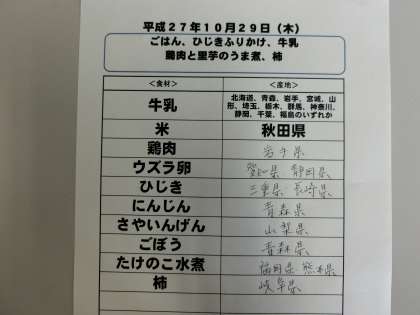 平成27年10月29日(木)
ごはん、ひじきふりかけ、牛乳
鶏肉と里芋のうま煮、柿
<食材> <産地>
牛乳 北海道、青森、岩手、宮城、山
形、埼玉、栃木、群馬、神奈川、
静岡、千葉、福島のいずれか
米 秋田県
鶏肉 岩手県
ウズラ卵 愛知県 静岡県
ひじき 三重県 長崎県
にんじん 青森県
さやいんげん 山梨県
ごぼう 青森県
たけのこ水煮 福岡県 熊本県
柿 岐阜県